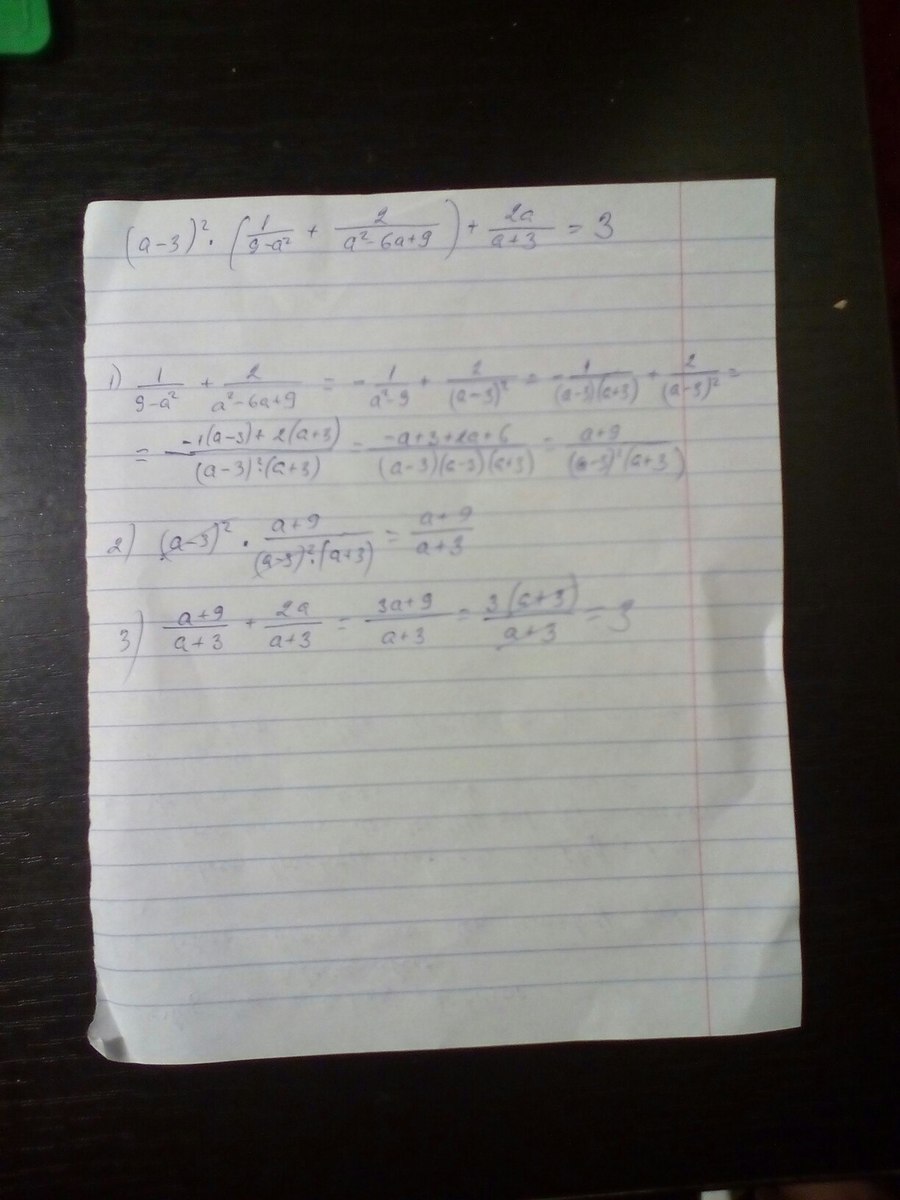 (a-3)²·(1/(9-a²) + 2/(a²-6a+9)) + 2a/(a+3) = 3
1) 1/(9-a²) + 2/(a²-6a+9) = -1/(a²-9) + 2/(a-3)² = -1/((a-3)(a+3)) + 2/(a-3)² =
= (-1(a-3)+2(a+3))/((a-3)²·(a+3)) = (-a+3+2a+6)/((a-3)(a-3)(a+3)) = (a+9)/((a-3)²(a+3))
2) (a-3)² · (a+9)/((a-3)²·(a+3)) = (a+9)/(a+3)
3) (a+9)/(a+3) + 2a/(a+3) = (3a+9)/(a+3) = 3(a+3)/(a+3) = 3